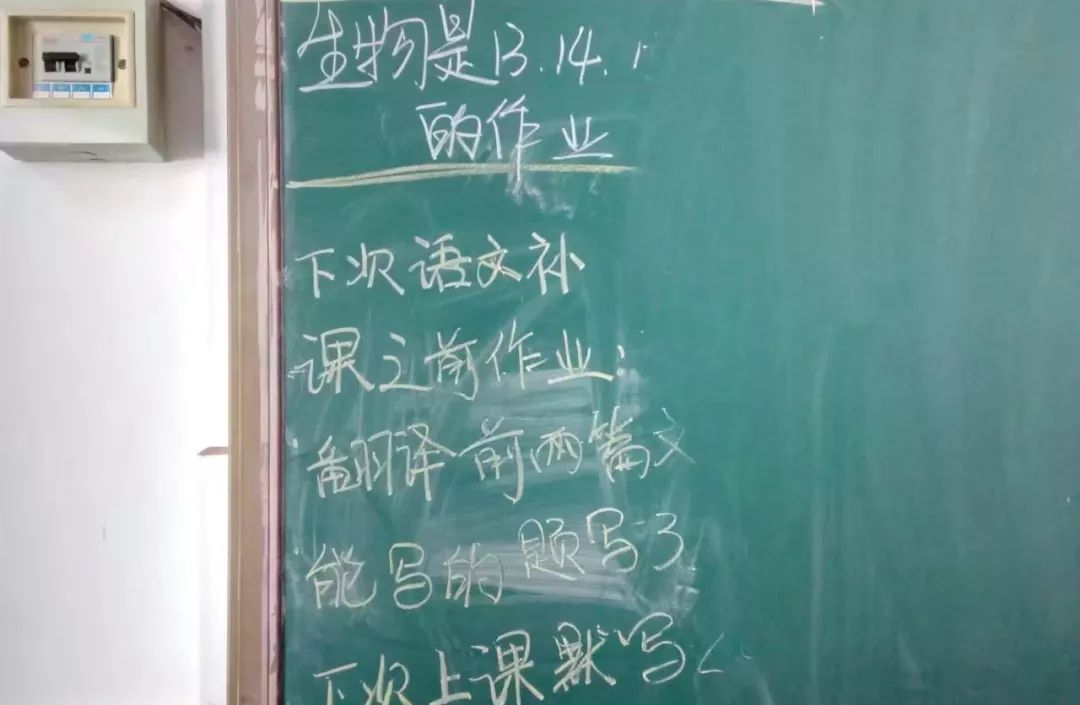 生物是13.14.1
的作业
下次语文补
课之前作业:
翻译前两篇文
能写的题写了
下次上课默写<